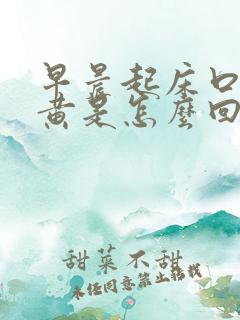 早晨起床口
黄是怎麼回
甜菜不甜
未经同意禁止转载